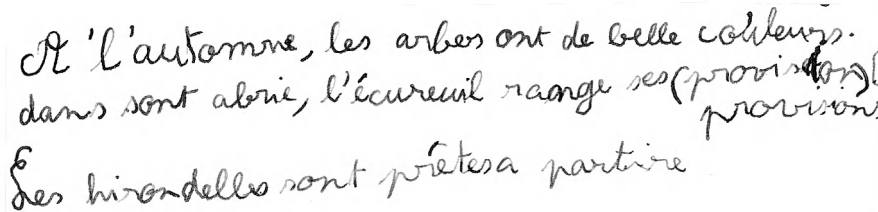 A 'l'automne, les arbes ont de belle couleurs.
dans sont abrie, l'écureuil raange ses (provision)
provisons
Les hirondelles sont prêtes a partire